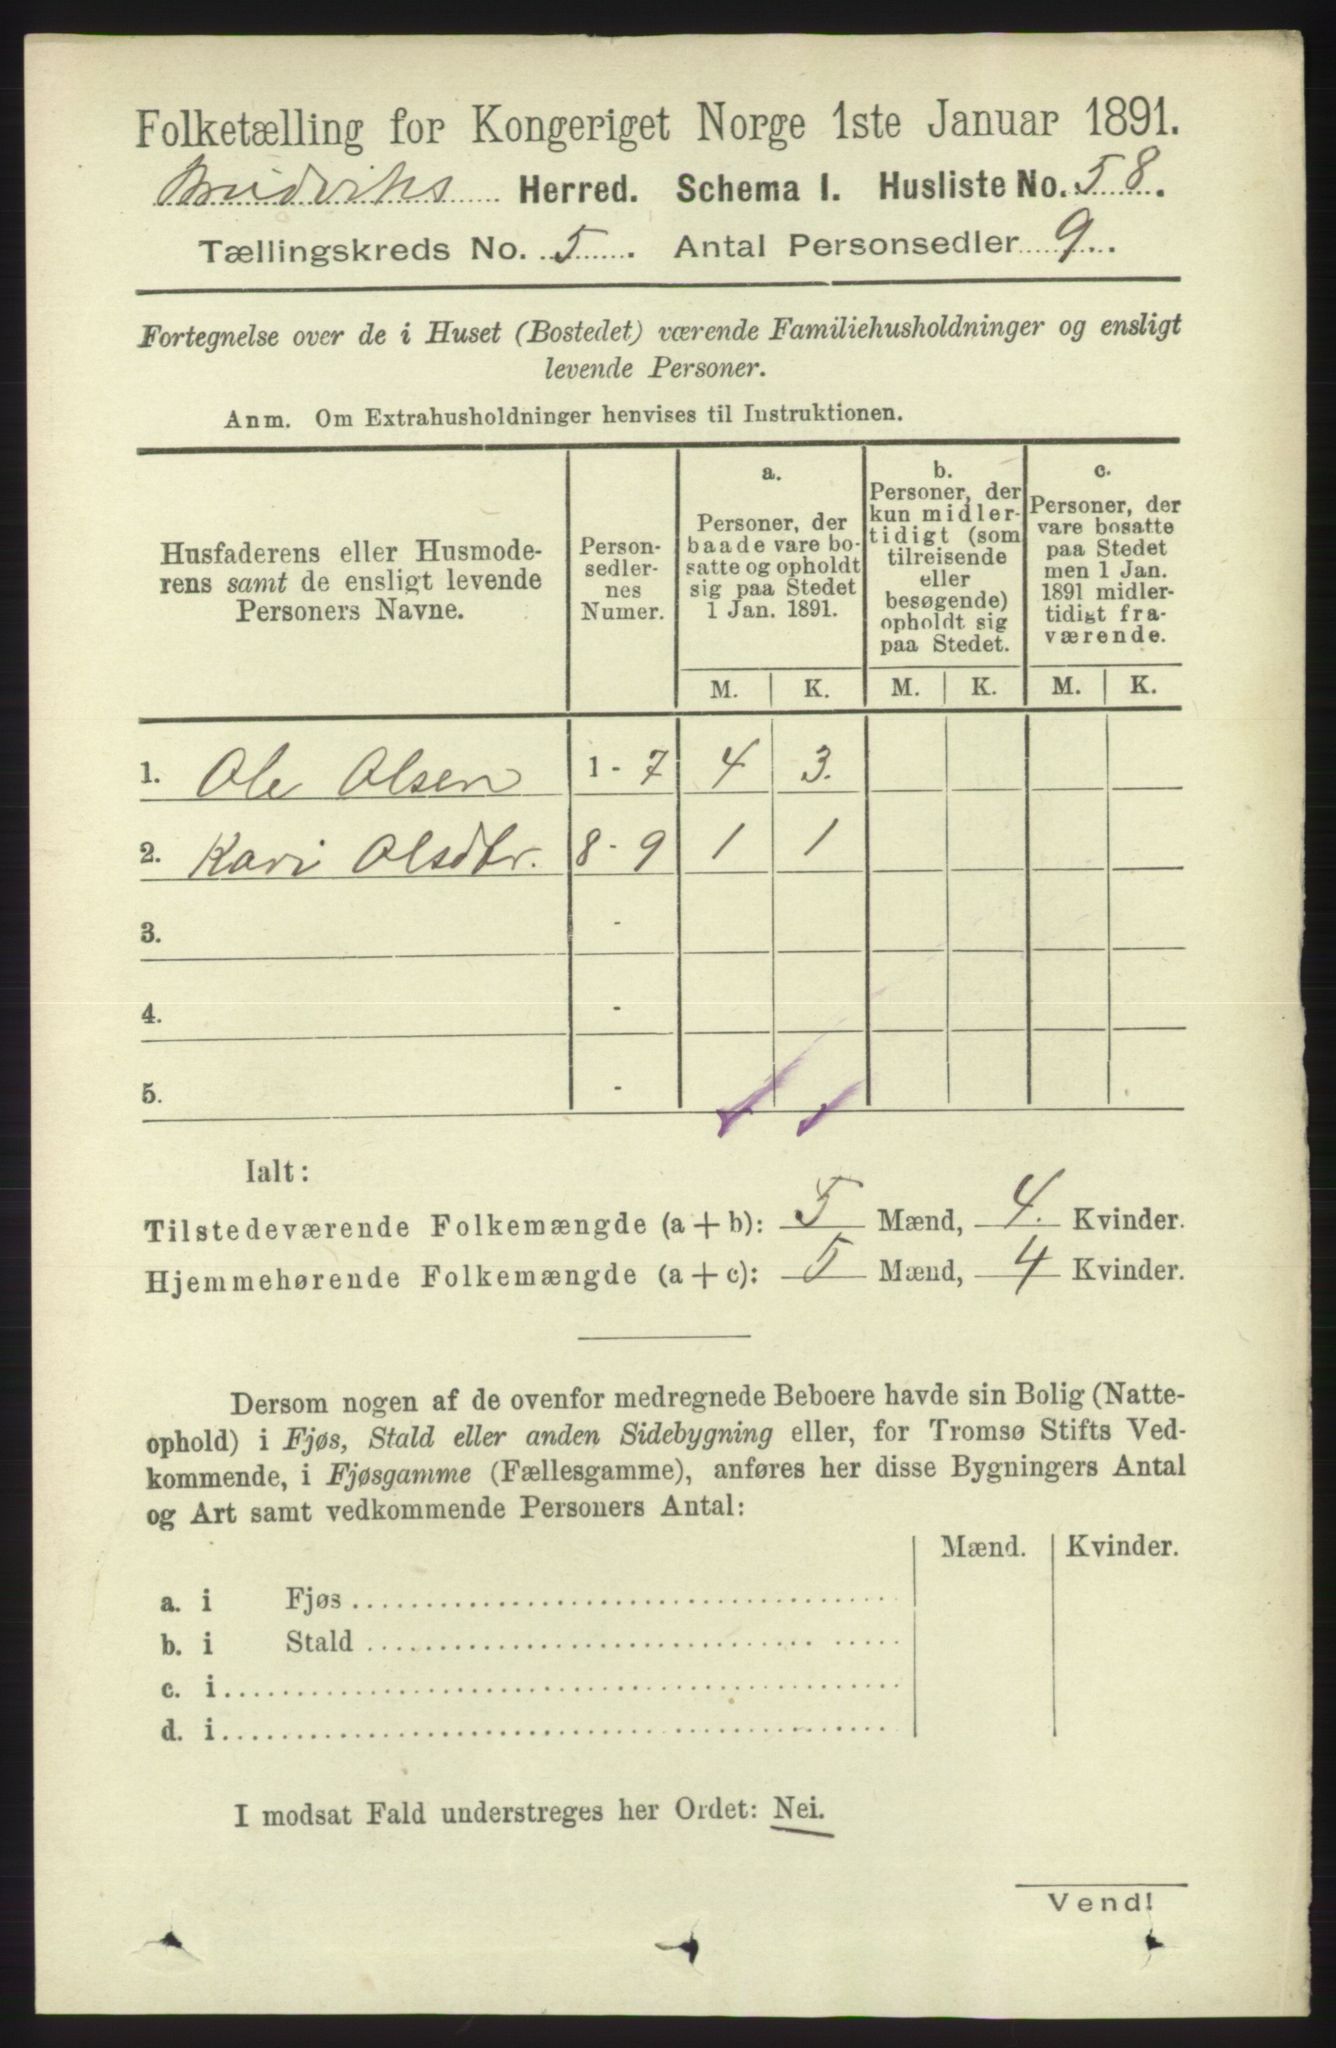 Folketælling for Kongeriget Norge 1ste Januar 1891.
Brudviks Herred. Schema I. Husliste No. 58.
Tællingskreds No. 5. Antal Personsedler 9.
Fortegnelse over de i Huset (Bostedet) værende Familiehusholdninger og ensligt
levende Personer.
Anm. Om Extrahusholdninger henvises til Instruktionen.
Husfaderens eller Husmode-
rens samt de ensligt levende
Personers Navne.
Person-
sedler-
nes
Numer.
a.
Personer, der
baade vare bo-
satte og opholdt
sig paa Stedet
1 Jan. 1891.
b.
Personer, der
kun midler-
tidigt (som
tilreisende
eller
besøgende)
opholdt sig
paa Stedet.
c.
Personer, der
vare bosatte
paa Stedet
men 1 Jan.
1891 midler-
tidigt fra-
værende.
M. K. M. K. M. K.
1. Ole Olsen 1 - 7 4 3.
2. Kari Olsdtr. 8 - 9 1 1
3. -
4. -
5. -
Ialt:
Tilstedeværende Folkemængde (a + b): 5 Mænd, 4. Kvinder.
Hjemmehørende Folkemængde (a + c): 5 Mænd, 4 Kvinder.
Dersom nogen af de ovenfor medregnede Beboere havde sin Bolig (Natte-
ophold) i Fjøs, Stald eller anden Sidebygning eller, for Tromsø Stifts Ved-
kommende, i Fjøsgamme (Fællesgamme), anføres her disse Bygningers Antal
og Art samt vedkommende Personers Antal:
Mænd. Kvinder.
a. i Fjøs
b. i Stald
c. i
d. i
I modsat Fald understreges her Ordet: Nei.
Vend!